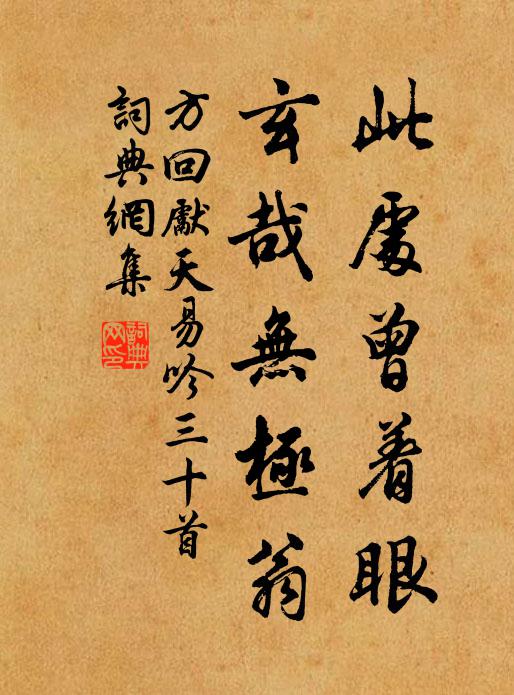 此處曾着眼
玄哉無極翁
方回獻天易吟三十首
詞典網集
詞典网印